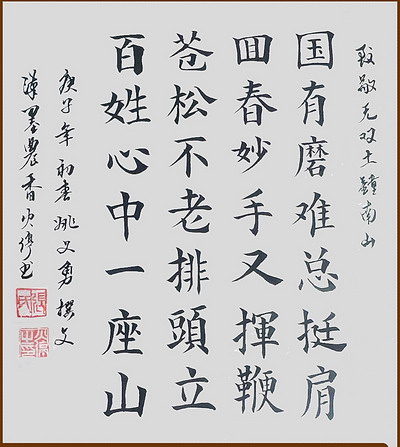 致敬无双士鐘南山
国有磨难总挺肩
回春妙手又揮鞭
苍松不老排頭立
百姓心中一座山
庚子年初春姚义勇撰文
漢墨農香